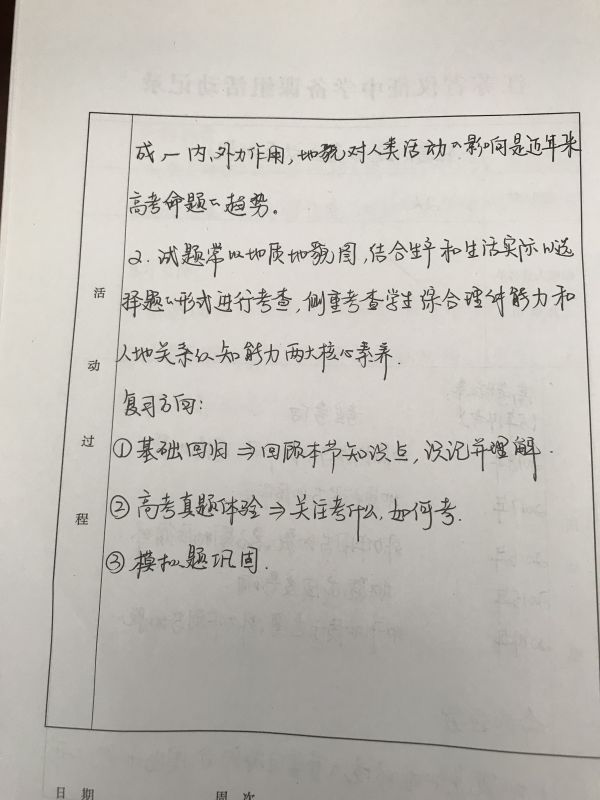 成,内、外力作用,地貌对人类活动的影响是近年来
高考命题的趋势。
2. 试题常以地质地貌图,结合生产和生活实际以选
择题的形式进行考查,侧重考查学生综合理解能力和
人地关系认知能力两大核心素养.
复习方向:
① 基础回归 ⇒ 回顾本节知识点,识记并理解.
② 高考真题体验 ⇒ 关注考什么,如何考.
③ 模拟题巩固.
活
动
过
程
日 期
周 次